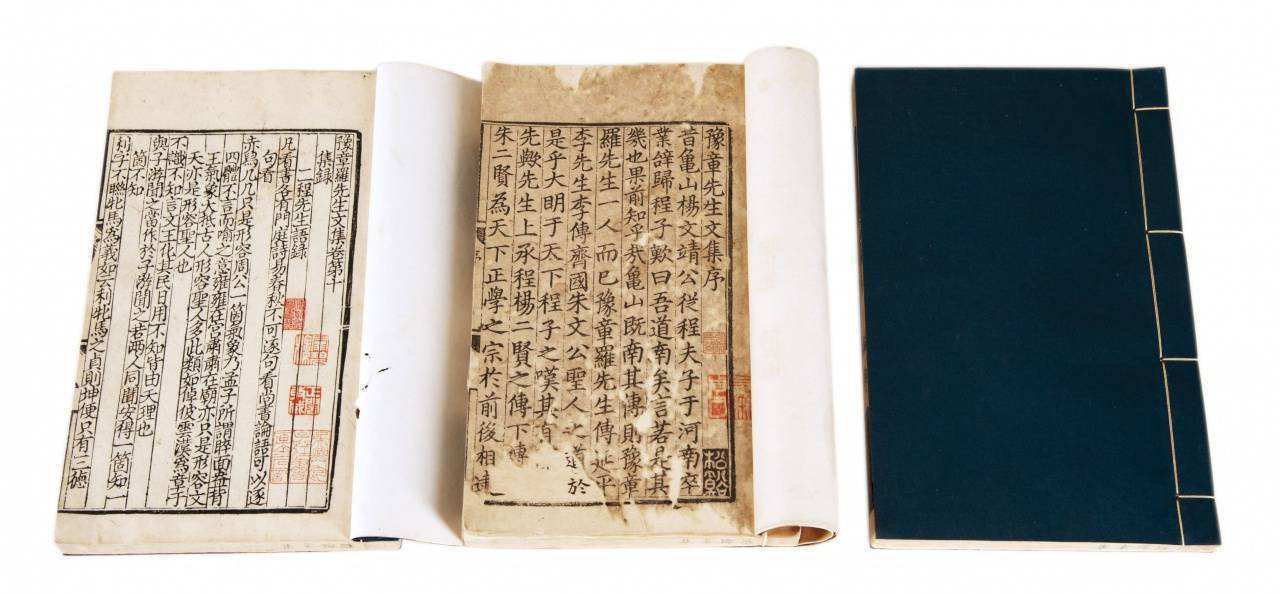 豫章先生文集序
昔亀山楊文靖公從程夫子于河南卒
業辝歸程子歎曰吾道南矣言若是其
幾也果前知乎㢤亀山既南其傳則豫章
羅先生一人而已豫章羅先生傳延平
李先生李傳齊國朱文公聖人之道於
是乎大明于天下程子之嘆其
先歟先生上承程楊二賢之傳下傳
朱二賢為天下正學之宗於前後相
豫章羅先生文集卷第十
集錄
二程先生語錄
凡看書各有門庭詩易春秋不可逐句看尚書論語可以逐
句看
赤舄几几只是形容周公一箇氣象乃孟子所謂睟面盎背
四體不言而喻之意雍雍在宮肅肅在廟亦只是形容文
王氣象大抵古人形容聖人多此類如倬彼雲漢為章于
天亦是形容聖人也
不識不知言文王化其民日用不知皆由天理也
與子游聞之當作於子游聞之若兩人同聞安得一箇知一
箇不知
利字不聯牝馬為義如云利牝馬之貞則坤便只有三德